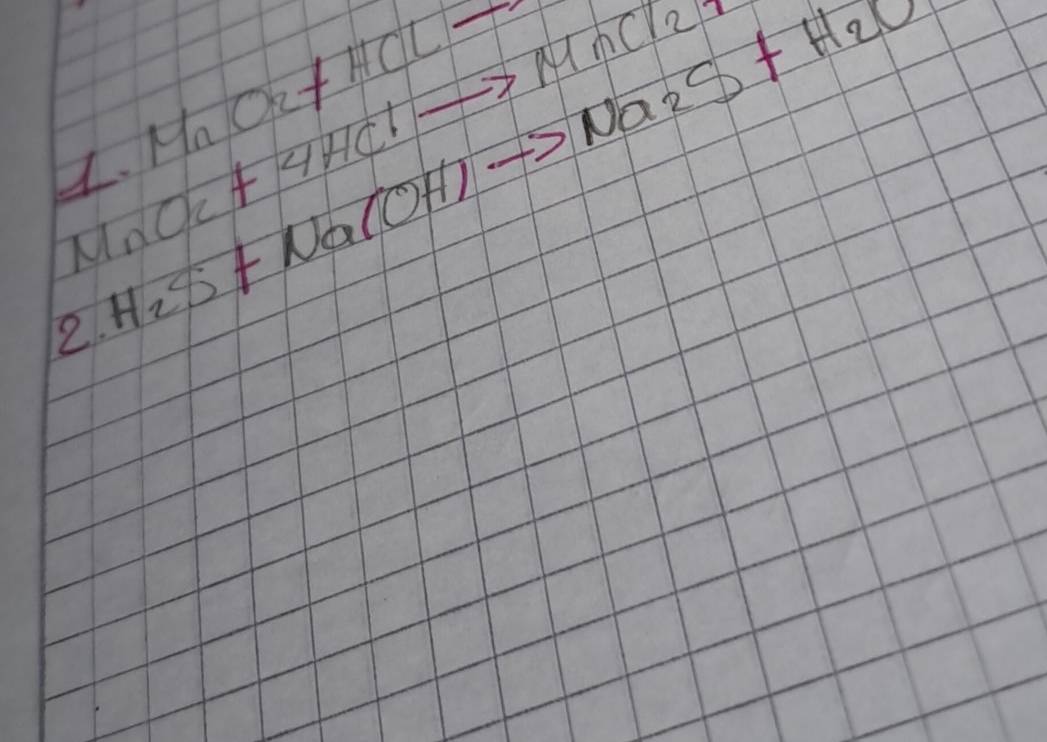 1. MnO2 + HCL →
MnO2 + 4HCl → MnCl2 +
2. H2S + Na(OH) → Na2S + H2O